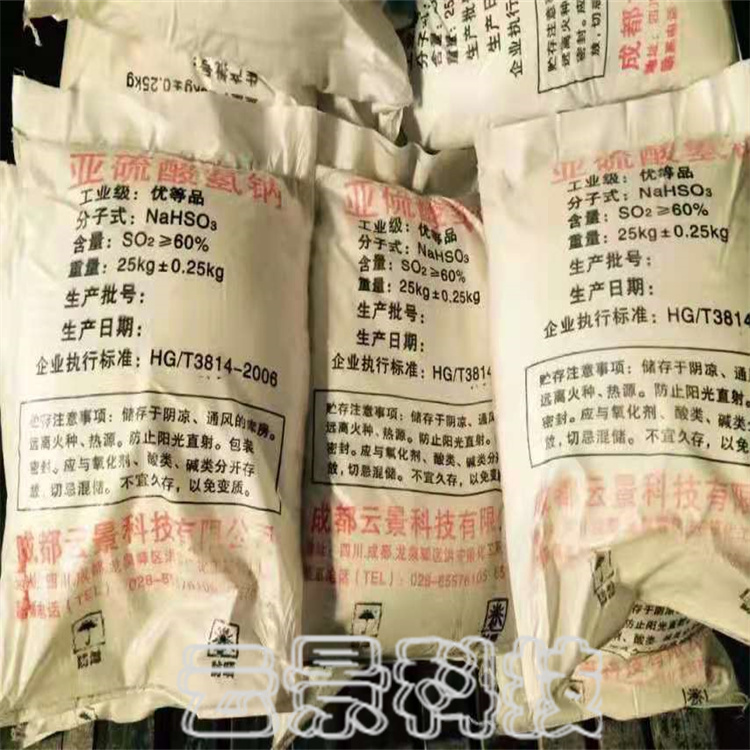 分子式:
含量:
重量: 25
生产批号:
生产日期:
企业执行标准:
贮存注意事项:
远离火种、热源
密封。应与氧
放,切忌混储
成都
±0.25kg
生产批号:
亚硫酸氢钠
工业级:优等品
分子式:NaHSO₃
含量:SO₂≥60%
重量:25kg±0.25kg
生产批号:
生产日期:
企业执行标准:HG/T3814-2006
贮存注意事项:储存于阴凉、通风的库房。
远离火种、热源。防止阳光直射。包装
密封。应与氧化剂、酸类、碱类分开存
放,切忌混储。不宜久存,以免变质。
成都云景科技有限公司
四川,成都,龙泉驿区洪
电话(TEL):028-85976105
防潮
亚硫酸氢
工业级:优等品
分子式:NaHSO₃
含量:SO₂≥60%
重量:25kg±0.25kg
生产批号:
生产日期:
企业执行标准:HG/T3814
贮存注意事项:储存于阴凉、通风
远离火种、热源。防止阳光直射。
密封。应与氧化剂、酸类、碱类
放,切忌混储。不宜久存,以免
成都云景科技有限
地址:四川,成都,龙泉驿区洪
电话(TEL):028-85976105
亚硫酸氢钠
工业级:优等品
分子式:NaHSO₃
含量:SO₂≥60%
重量:25kg±0.25kg
生产批号:
生产日期:
企业执行标准:HG/T3814
贮存注意事项:储存于阴凉、通
远离火种、热源。防止阳光直射
密封。应与氧化剂、酸类、碱
放,切忌混储。不宜久存,以
成都云景科技有
储存于阴凉
防止阳光直射
酸类、碱类
云景科技